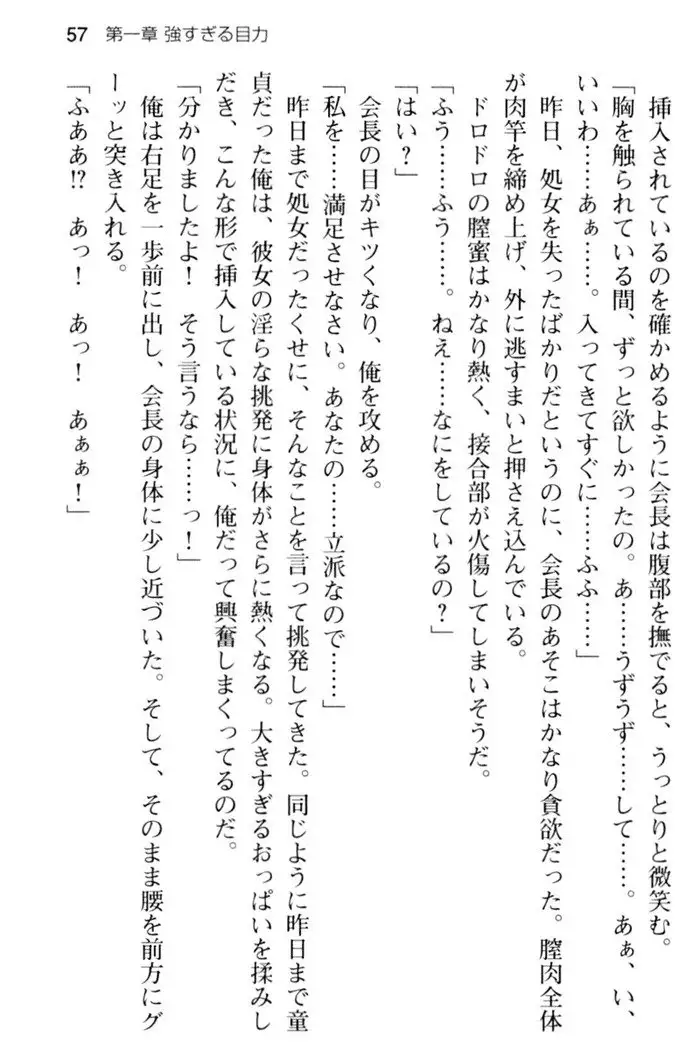 57 第一章 強すぎる目力
挿入されているのを確かめるように会長は腹部を撫でると、うっとりと微笑む。
「胸を触られている間、ずっと欲しかったの。あ……うずうず……して……。あぁ、い、
いいわ……あぁ……。入ってきてすぐに……ふふ……」
昨日、処女を失ったばかりだというのに、会長のあそこはかなり貪欲だった。膣肉全体
が肉竿を締め上げ、外に逃すまいと押さえ込んでいる。
ドロドロの膣蜜はかなり熱く、接合部が火傷してしまいそうだ。
「ふぅ……ふぅ……。ねえ……なにをしているの？」
「はい？」
会長の目がキツくなり、俺を攻める。
「私を……満足させなさい。あなたの……立派なので……」
昨日まで処女だったくせに、そんなことを言って挑発してきた。同じように昨日まで童
貞だった俺は、彼女の淫らな挑発に身体がさらに熱くなる。大きすぎるおっぱいを揉みし
だき、こんな形で挿入している状況に、俺だって興奮しまくってるのだ。
「分かりましたよ！　そう言うなら……っ！」
俺は右足を一歩前に出し、会長の身体に少し近づいた。そして、そのまま腰を前方にグ
ーッと突き入れる。
「ふああ!?　あっ！　あっ！　あぁぁ！」